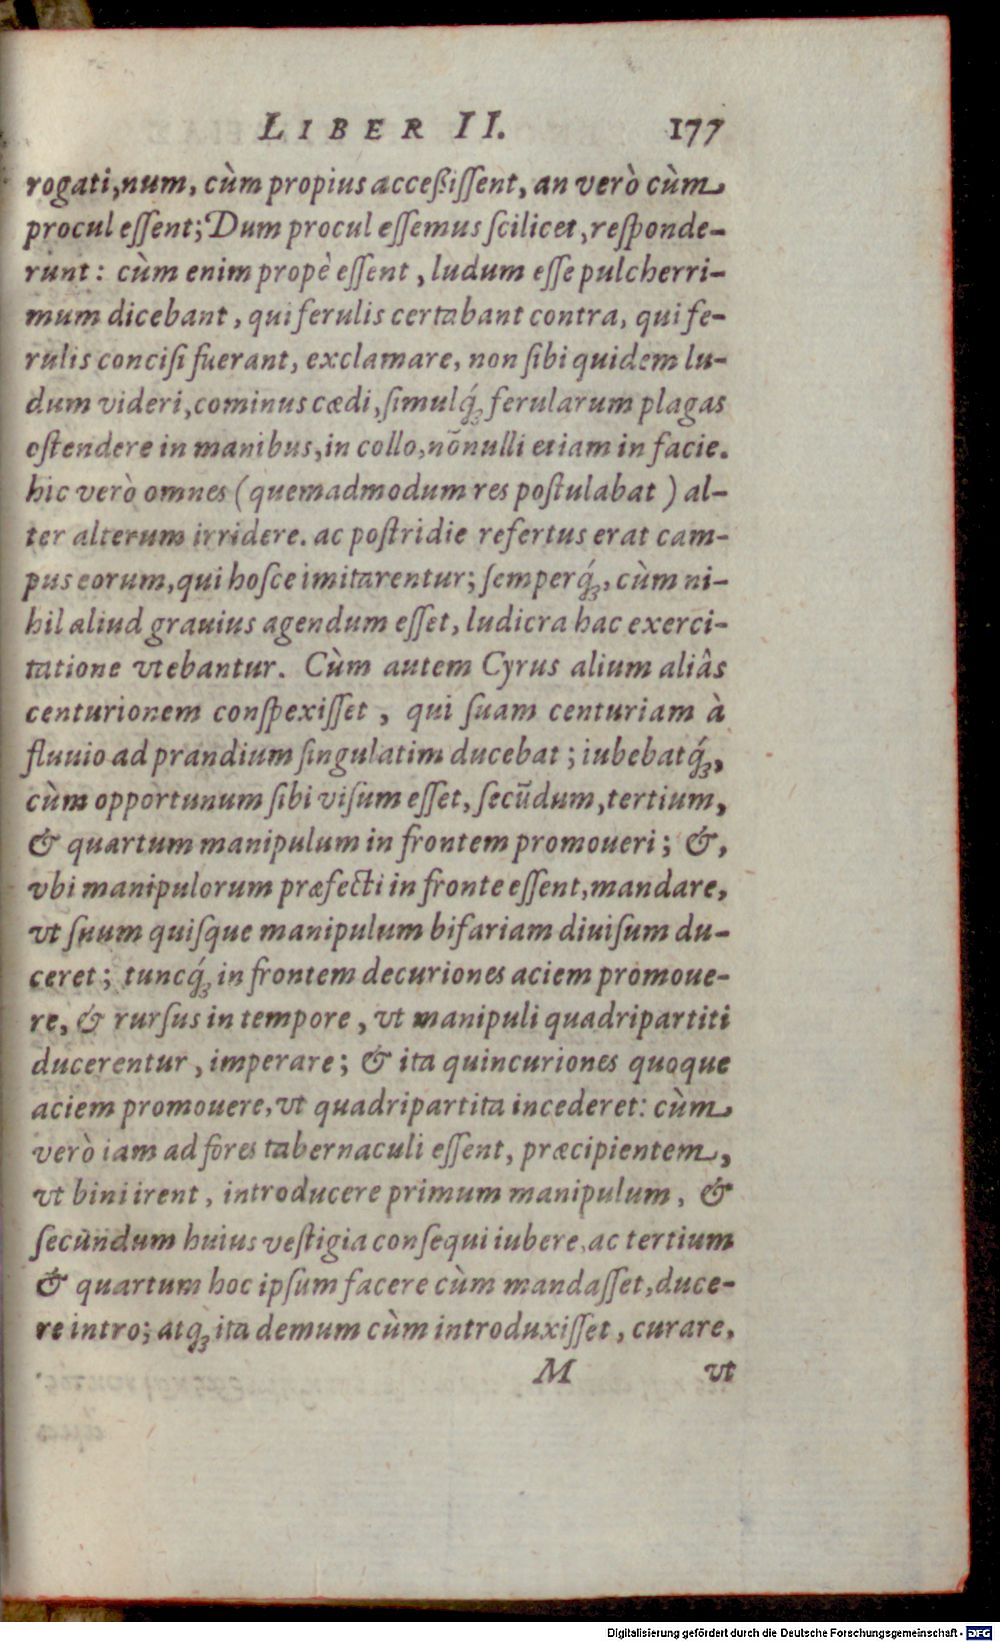 LIBER II. 177
rogati, num, cùm propius acceßiſſent, an verò cùm
procul eſſent; Dum procul eſſemus ſcilicet, reſponde-
runt: cùm enim propè eſſent, ludum eſſe pulcherri-
mum dicebant, qui ferulis certabant contra, qui fe-
rulis conciſi fuerant, exclamare, non ſibi quidem lu-
dum videri, cominus cædi, ſimulq́ꝫ ferularum plagas
oſtendere in manibus, in collo, nōnulli etiam in facie.
hic verò omnes (quemadmodum res poſtulabat) al-
ter alterum irridere. ac poſtridie refertus erat cam-
pus eorum, qui hoſce imitarentur; ſemperq́ꝫ, cùm ni-
hil aliud grauius agendum eſſet, ludicra hac exerci-
tatione vtebantur. Cùm autem Cyrus alium aliâs
centurionem conſpexiſſet, qui ſuam centuriam à
fluuio ad prandium ſingulatim ducebat; iubebatq́ꝫ,
cùm opportunum ſibi viſum eſſet, ſecūdum, tertium,
& quartum manipulum in frontem promoueri; &,
vbi manipulorum præfecti in fronte eſſent, mandare,
vt ſuum quiſque manipulum bifariam diuiſum du-
ceret; tuncq́ꝫ in frontem decuriones aciem promoue-
re, & rurſus in tempore, vt manipuli quadripartiti
ducerentur, imperare; & ita quincuriones quoque
aciem promouere, vt quadripartita incederet: cùm
verò iam ad fores tabernaculi eſſent, præcipientem,
vt bini irent, introducere primum manipulum, &
ſecundum huius veſtigia conſequi iubere, ac tertium
& quartum hoc ipſum facere cùm mandaſſet, duce-
re intro; atq̀ꝫ ita demum cùm introduxiſſet, curare,
M vt
Digitalisierung gefördert durch die Deutsche Forschungsgemeinschaft - DFG